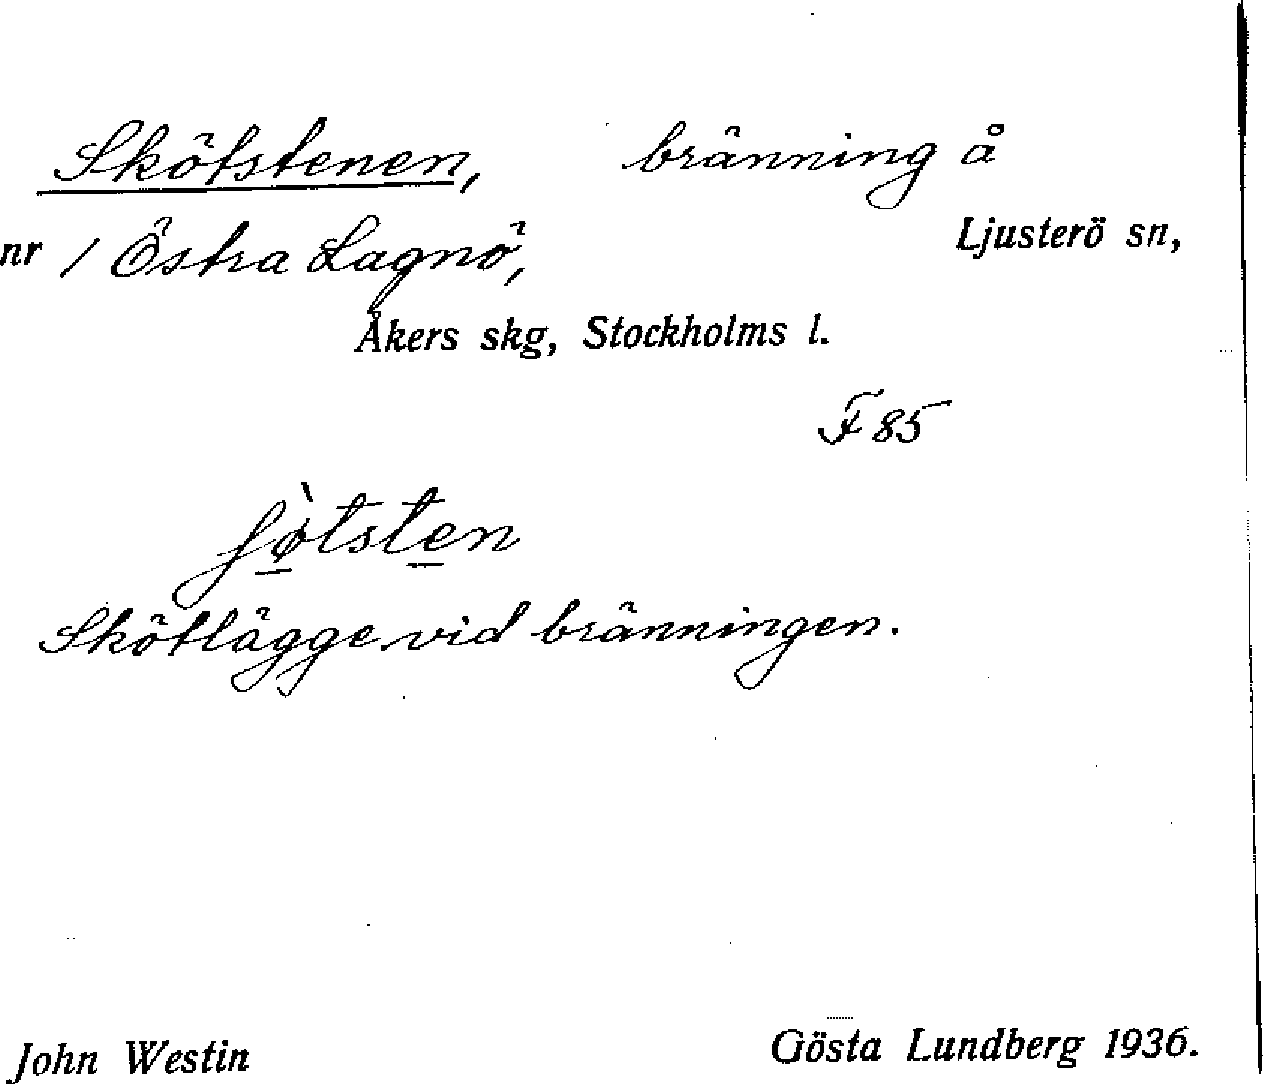 Skötstenen, bränning å
nr 1 Östra Lagnö, Ljusterö sn,
Åkers skg, Stockholms l.
F 85
ʃø̀tsten
Skötlägge vid bränningen.
John Westin Gösta Lundberg 1936.